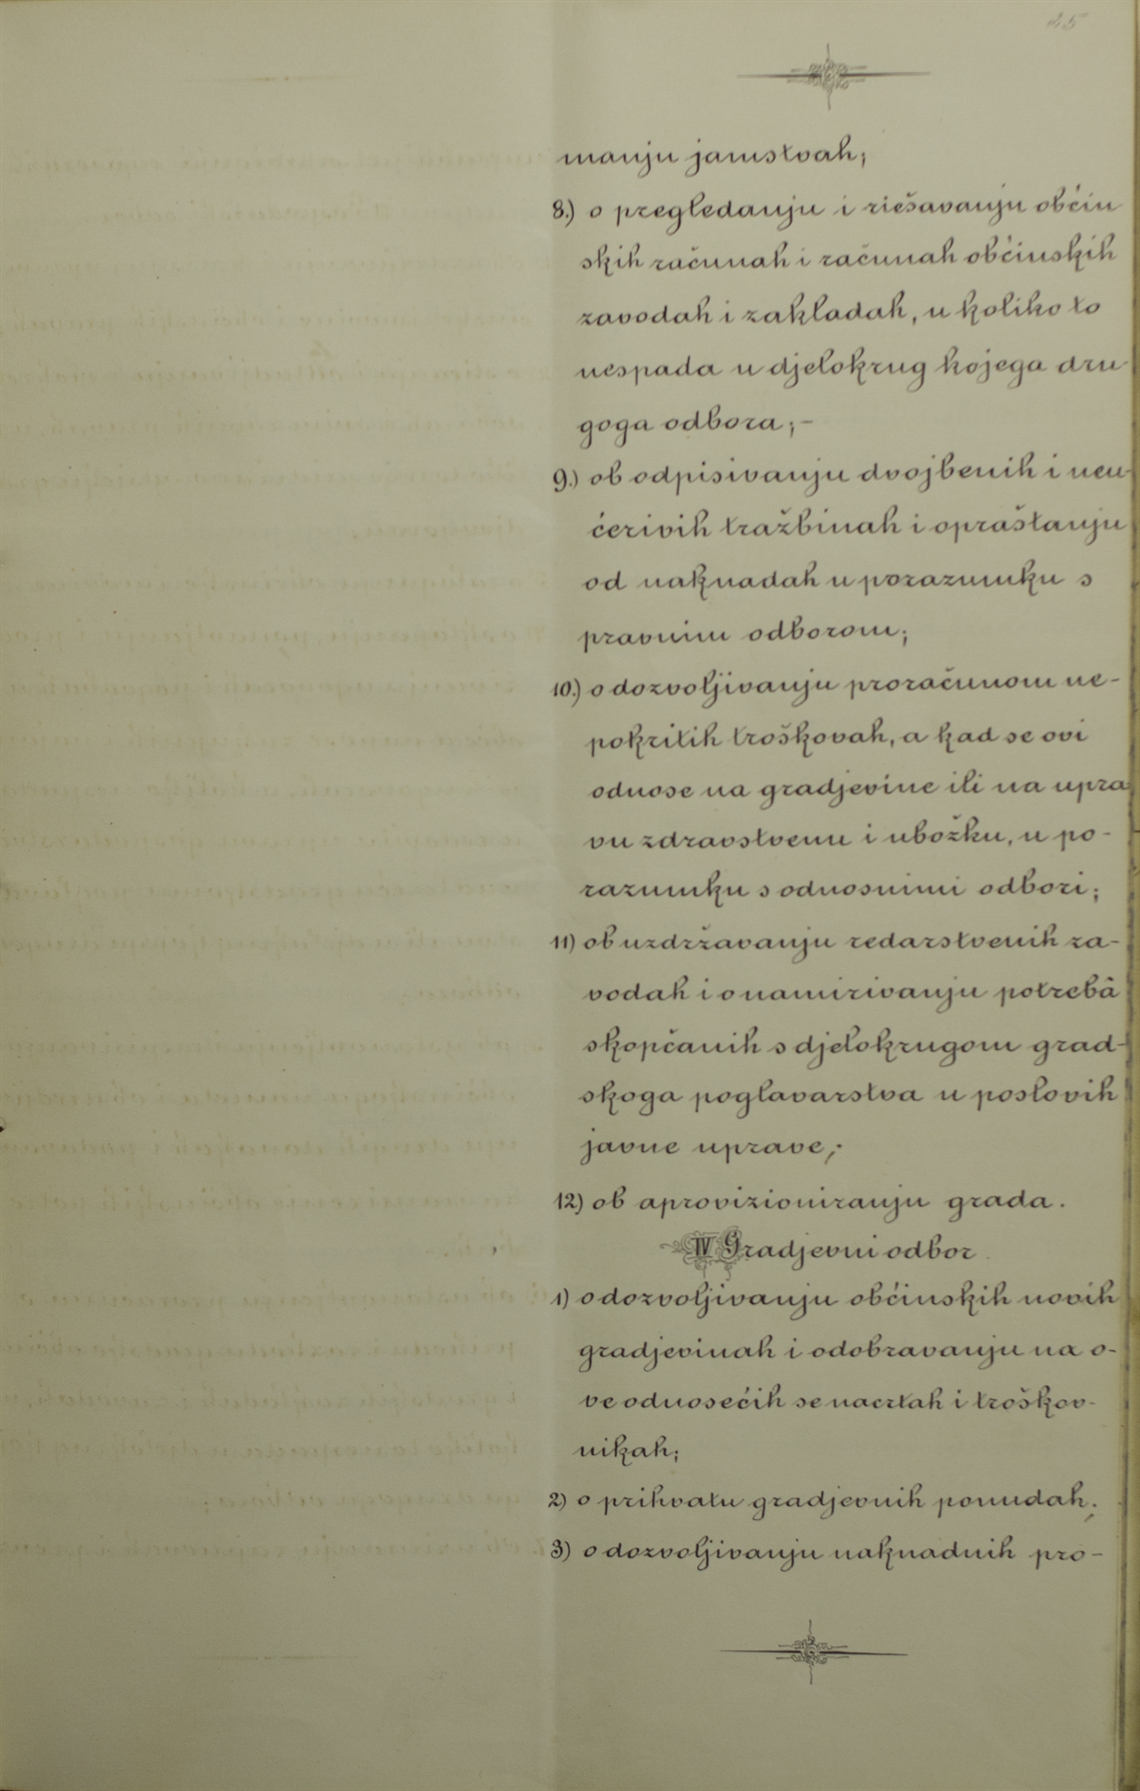 25
manju jamstvah;
8.) o pregledanju i riešavanju občin
skih računah i računah občinskih
zavodah i zakladah, u koliko to
nespada u djelokrug kojega dru-
goga odbora; -
9.) ob odpisivanju dvojbenih i neu-
ćerivih tražbinah i opraštanju
od naknadah u porazumku s
pravnim odborom;
10.) o dozvoljivanju proračunom ne-
pokritih troškovah, a kad se ovi
odnose na gradjevine ili na upra
vu zdravstvenu i ubožku, u po-
razumku s odnosnimi odbori;
11) ob uzdržavanju redarstvenih za-
vodah i o namirivanju potrebâ
skopčanih s djelokrugom grad-
skoga poglavarstva u poslovih
javne uprave;
12) ob aprovizioniranju grada.
IV Gradjevni odbor
1) o dozvoljivanju občinskih novih
gradjevinah i odobravanju na o-
ve odnosećih se nacrtah i troškov-
nikah;
2) o prihvatu gradjevnih ponudah;
3) o dozvoljivanju naknadnih pro-